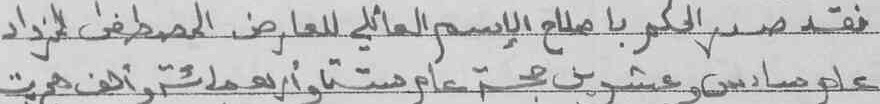 فقد صدر الحكم باصلاح الإسم العائلي للعارض المصطفى المزداد
عام سادس وعشرين حجة عام ستة وأربعمائة وألف هجرية